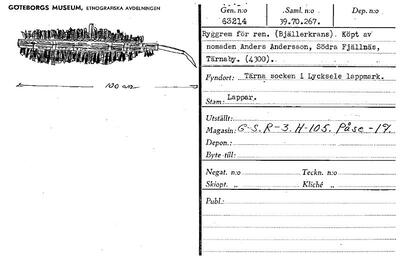 GÖTEBORGS MUSEUM, ETNOGRAFISKA AVDELNINGEN
100 cm
Gen. n:o
63214
Saml. n:o
39.70.267.
Dep. n:o
Ryggrem för ren. (Bjällerkrans). Köpt av
nomaden Anders Andersson, Södra Fjällnäs,
Tärnaby. (4300).
Fyndort: Tärna socken i Lycksele lappmark.
Stam: Lappar.
Utställt:
Magasin: G-S. R-3. H-105. Påse-19.
Depon.:
Byte till:
Negat. n:o
Teckn. n:o
Skiopt. „
Kliché „
Publ.: